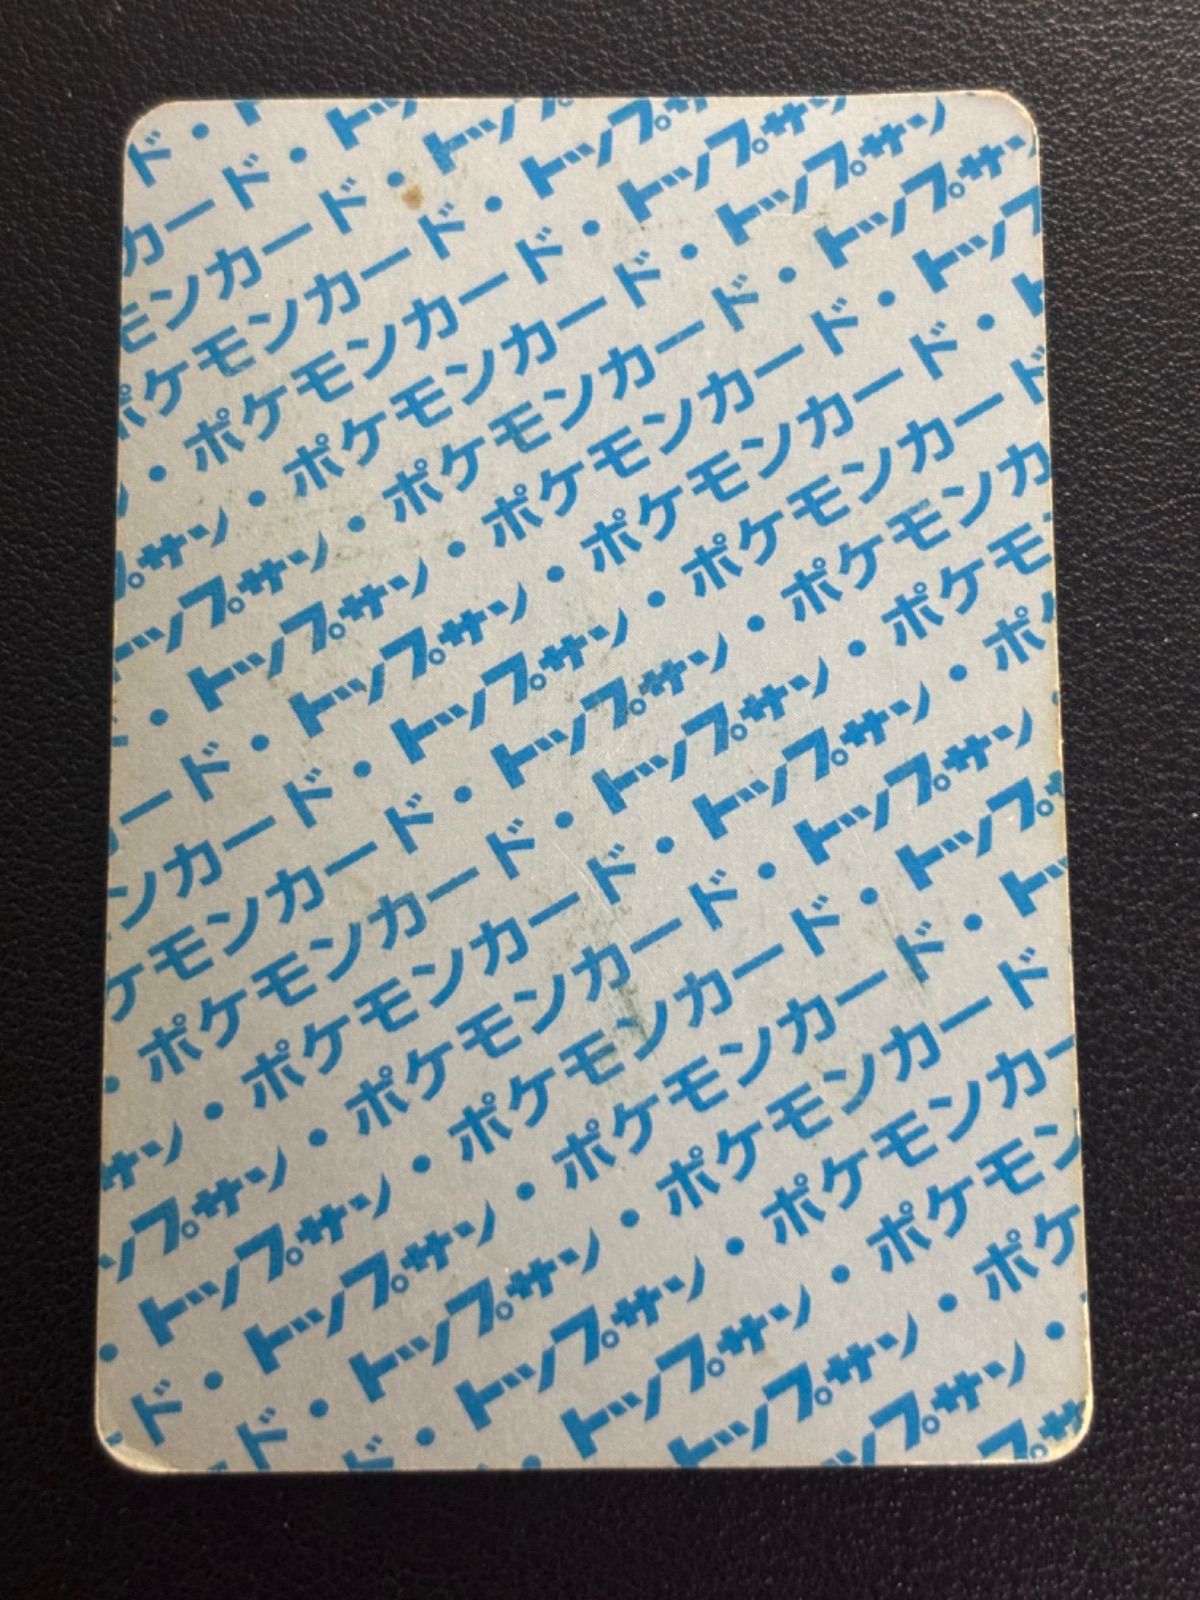 ド・ト
カード・トッ
モンカード・トッ
ポケモンカード・トップサ
・ポケモンカード・トップサ
ン・ポケモンカード・トップサン
プサン・ポケモンカード・トップサン
トップサン・ポケモンカード・トップ
・トップサン・ポケモンカード・ト
・トップサン・ポケモンカード
ード・トップサン・ポケモンカ
ンカード・トップサン・ポケモ
ケモンカード・トップサン・ポ
・ポケモンカード・トップサン・
サン・ポケモンカード・トップサ
ップサン・ポケモンカード・ト
・トップサン・ポケモンカード
ド・トップサン・ポケモンカー
ド・トップサン・ポケモン
ド・トップサン・ポケ
トップサン・
ップサン
トップサ